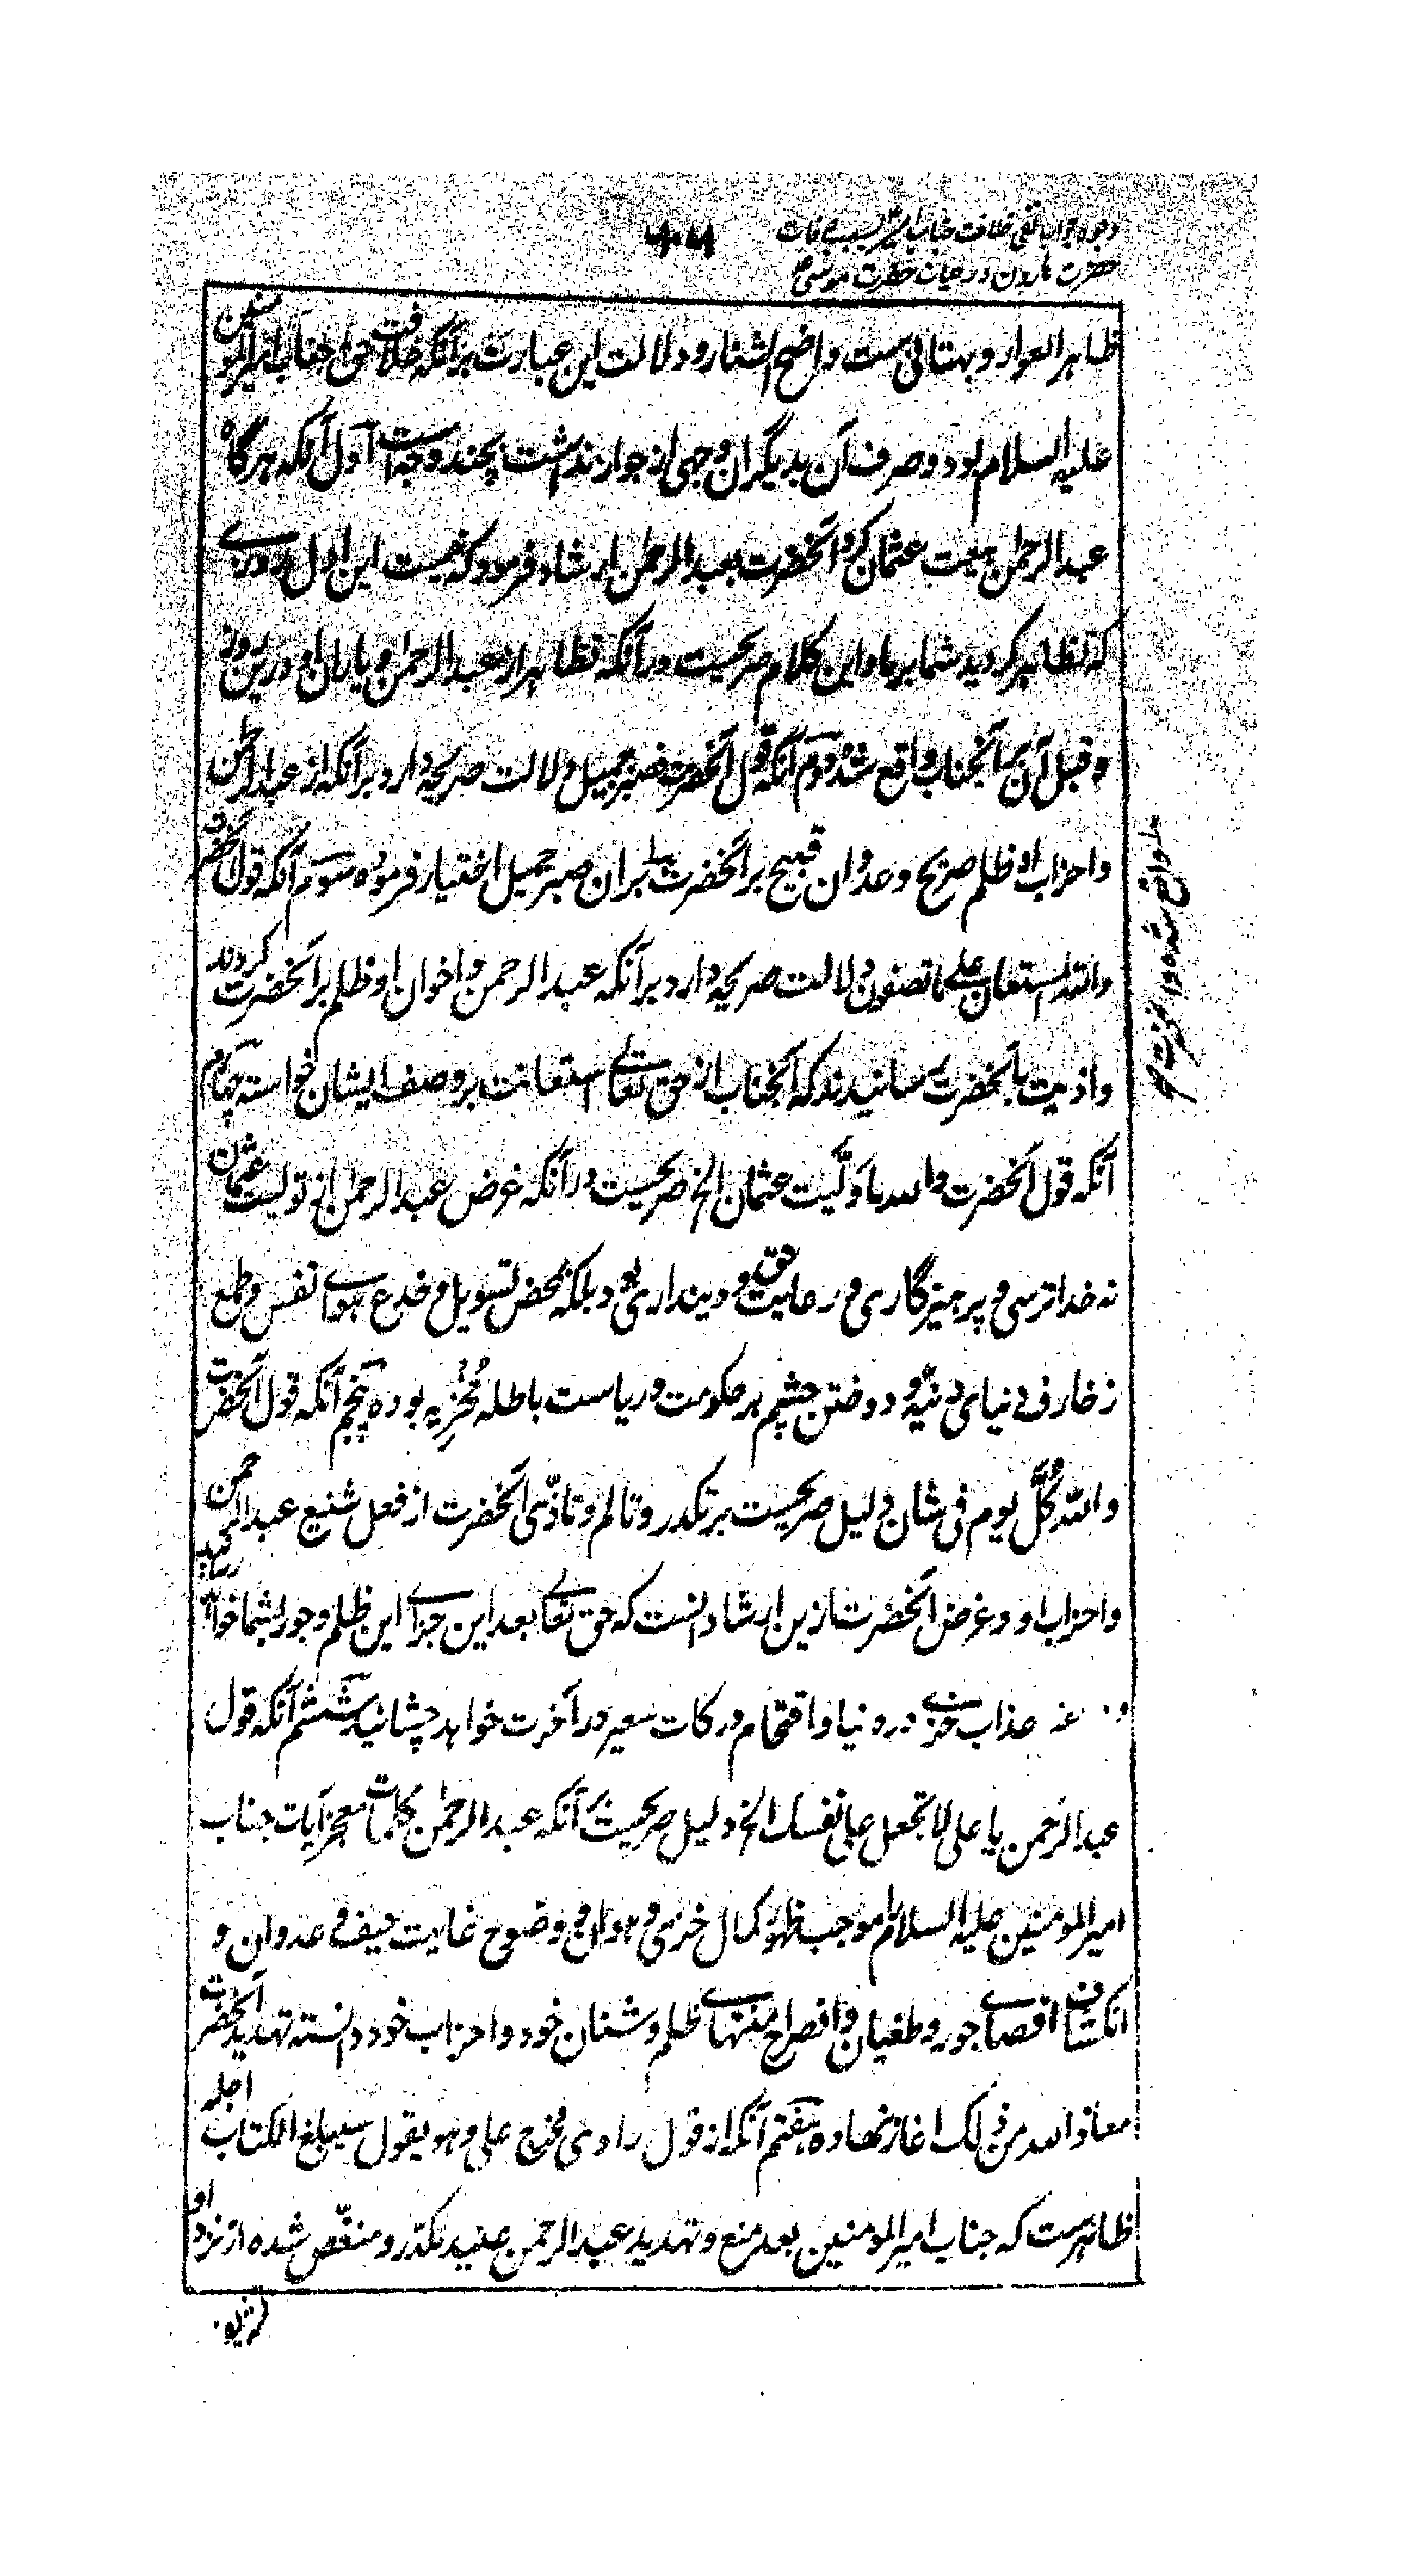 وجوه جواب نفی خلافت جناب امیر بسبب وفات
حضرت هارون در حیات حضرت موسی
ظاهر العوار و بهتانی ست واضح الشنار و دلالت این عبارت برآنکه خلافت حق جناب امیرالمومنین
علیه السلام بود و صرف آن بدیگران وجهی از جواز نداشت بچند وجه است اول آنکه هرگاه
عبدالرحمن بیعت عثمان کرد آنحضرت بعبدالرحمن ارشاد فرمود که نیست این اول روزی
که تظاهر کردید شما بر ما و این کلام صریحست در آنکه تظاهر از عبدالرحمن و یاران او درین روز
و قبل آن بر آنجناب واقع شده دوم آنکه قول آنحضرت فصبر جمیل دلالت صریحه دارد برآنکه از عبدالرحمن
و احزاب او ظلم صریح و عدوان قبیح بر آنحضرت بران صبر جمیل اختیار فرموده سوم آنکه قول آنحضرت
والله المستعان علی ما تصفون دلالت صریحه دارد برآنکه عبدالرحمن و اخوان او ظلم بر آنحضرت کردند
و اذیت بآنحضرت رسانیدند که آنجناب از حق تعالی استعانت بر وصف ایشان خواسته چهارم
آنکه قول آنحضرت والله ما ولّیت عثمان الخ صریحست در آنکه غرض عبدالرحمن از تولیت عثمان
نه خداترسی و پرهیزگاری و رعایت حق و دینداری بود بلکه محض تسویل و خدع هوای نفس و طمع
زخارف دنیای دنیّه و دوختن چشم بر حکومت و ریاست باطله مُخزیه بوده پنجم آنکه قول آنحضرت
والله کُلَّ یوم فی شان دلیل صریحست بر تکدر و تالم و تاذّی آنحضرت از فعل شنیع عبدالرحمن
و احزاب او و غرض آنحضرت ازین ارشاد آنست که حق تعالی بعد این جزای این ظلم و جور بشما خواهد رسانید
عذاب خزی در دنیا و اقتحام درکات سعیر در آخرت خواهد چشانید ششم آنکه قول
عبدالرحمن یا علی لا تجعل علی نفسک الخ دلیل صریحست بر آنکه عبدالرحمن کلمات معجز آیات جناب
امیرالمومنین علیه السلام را موجب ظهور کمال خزی و هوان و وضوح غایت حیف و عدوان و
انکشاف اقصای جور و طغیان و افصاح منتهای ظلم و شنان خود و احزاب خود دانسته تهدید آنحضرت
معاذ الله من ذلک آغاز نهاده هفتم آنکه از قول راوی فخرج علی و هو یقول سیبلغ الکتاب اجله
ظاهرست که جناب امیرالمومنین بعد منع و تهدید عبدالرحمن عنید مکدر و منغّص شده از نزد او